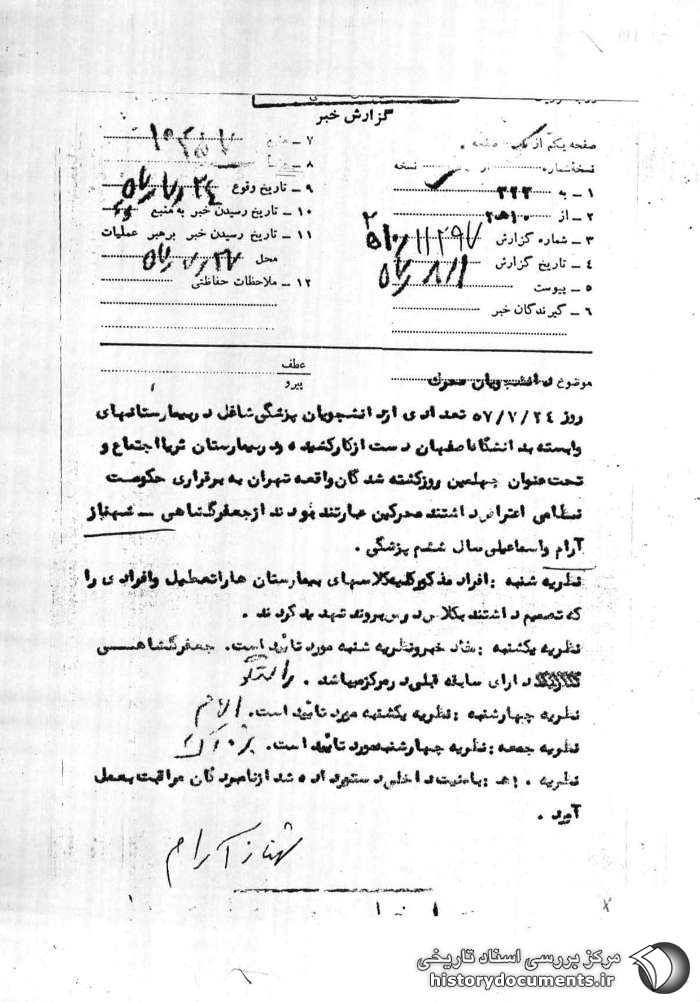 گزارش خبر
صفحه یکم از یک صفحه
نسخه شماره از نسخه
۱ ــ به ۳۲۳
۲ ــ از ۱۰ه۲
۳ ــ شماره گزارش ۱۱۲۹۷
۴ ــ تاریخ گزارش ۵۷/۸/۱
۵ ــ پیوست
۶ ــ گیرندگان خبر
۷ ــ منبع
۸ ــ منشأ
۹ ــ تاریخ وقوع ۵۷/۷/۲۴
۱۰ ــ تاریخ رسیدن خبر به منبع
۱۱ ــ تاریخ رسیدن خبر برهبر عملیات
محل ۵۷/۷/۲۷
۱۲ ــ ملاحظات حفاظتی
موضوع دانشجویان محرک
عطف
پیرو
روز ۵۷/۷/۲۴ تعدادی از دانشجویان پزشگی شاغل در بیمارستانهای
وابسته بدانشگاه اصفهان دست از کار کشیده و در بیمارستان ثریا اجتماع و
تحت عنوان چهلمین روز کشته شدگان واقعه تهران به برقراری حکومت
نظامی اعتراض داشتند محرکین عبارتند بودند از جعفر گشاهی ــ شهناز
آرام و اسماعیلی سال ششم پزشگی .
نظریه شنبه : افراد مذکور کلیه کلاسهای بیمارستان ها را تعطیل و افرادی را
که تصمیم داشتند بکلاس درس بروند تهدید کردند .
نظریه یکشنبه : مفاد خبر و نظریه شنبه مورد تائید است . جعفر گشاهی
دارای سابقه قبلی در مرکز میباشد .
نظریه چهارشنبه : نظریه یکشنبه مورد تائید است .
نظریه جمعه : نظریه چهارشنبه مورد تائید است .
نظریه . ا ه‍ : بامنیت داخلی دستور داده شد از نامبردگان مراقبت بعمل
آورد .
شهناز آرام
مرکز بررسی اسناد تاریخی
historydocuments.ir